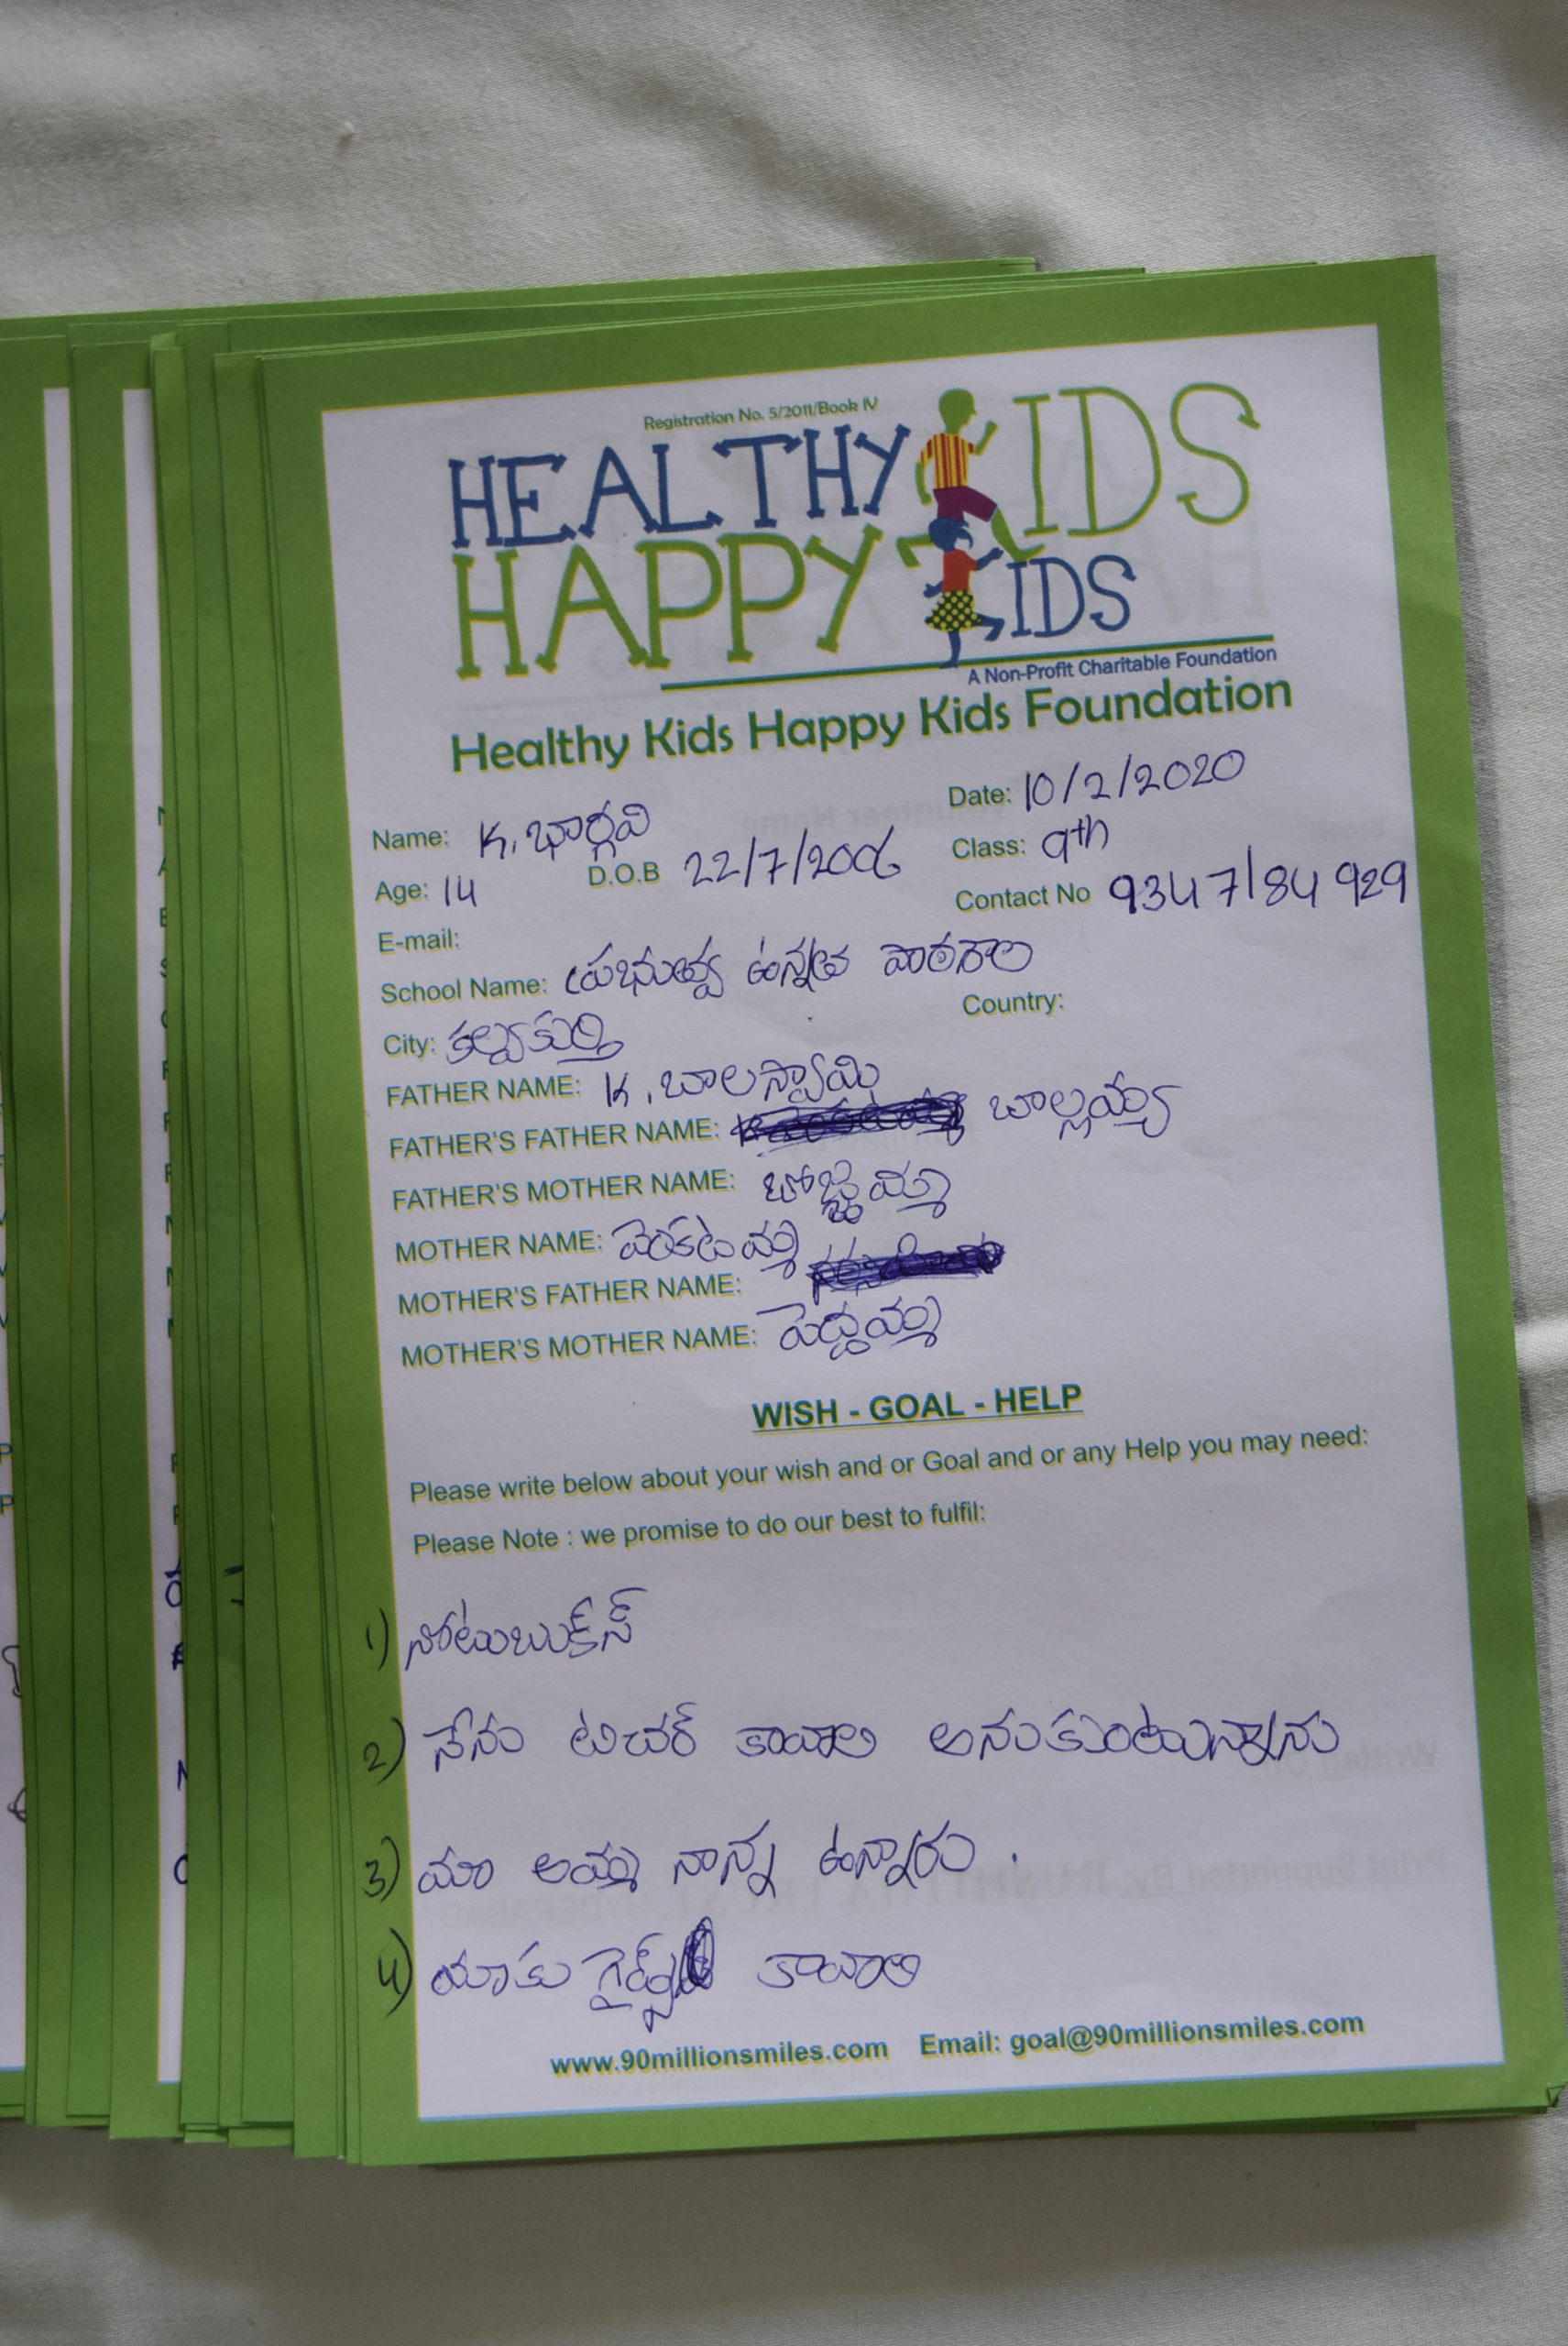 Registration No. 5/2011/Book IV
HEALTHY KIDS
HAPPY KIDS
A Non-Profit Charitable Foundation
Healthy Kids Happy Kids Foundation
Date: 10/2/2020
Name: K. భార్గవి
Class: 9th
Age: 14 D.O.B 22/7/2006
Contact No 9347184929
E-mail:
School Name: ప్రభుత్వ ఉన్నత పాఠశాల
Country:
City: కల్వకుర్తి
FATHER NAME: K. బాలస్వామి
FATHER'S FATHER NAME: బాల్లయ్య
FATHER'S MOTHER NAME: బోజ్జమ్మ
MOTHER NAME: వెంకటమ్మ
MOTHER'S FATHER NAME:
MOTHER'S MOTHER NAME: పెద్దమ్మ
WISH - GOAL - HELP
Please write below about your wish and or Goal and or any Help you may need:
Please Note : we promise to do our best to fulfil:
1) నోటుబుక్స్
2) నేను టిచర్ కావాలి అనుకుంటున్నాను
3) మా అమ్మ నాన్న ఉన్నారు.
4) కావాలి
www.90millionsmiles.com Email: goal@90millionsmiles.com